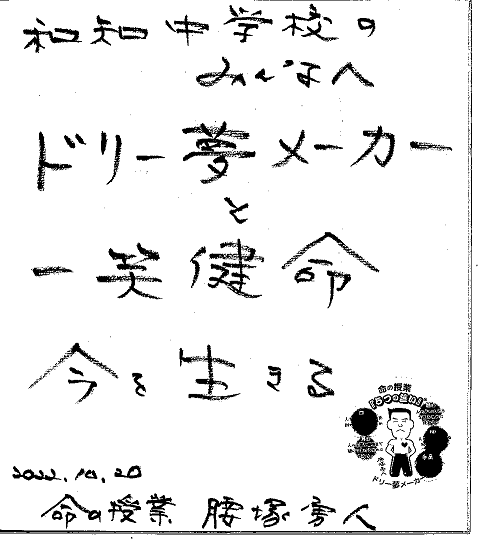 和知中学校の
みんなへ
ドリー夢メーカー
と
一笑健命
今を生きる
命の授業
『5つの誓い』
ドリー夢メーカー
2022.10.20
命の授業 腰塚勇人